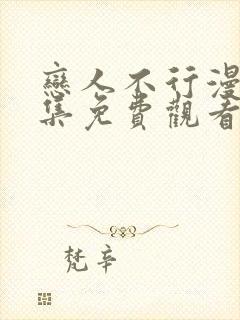 戀人不行漫
集免費觀看
梵辛